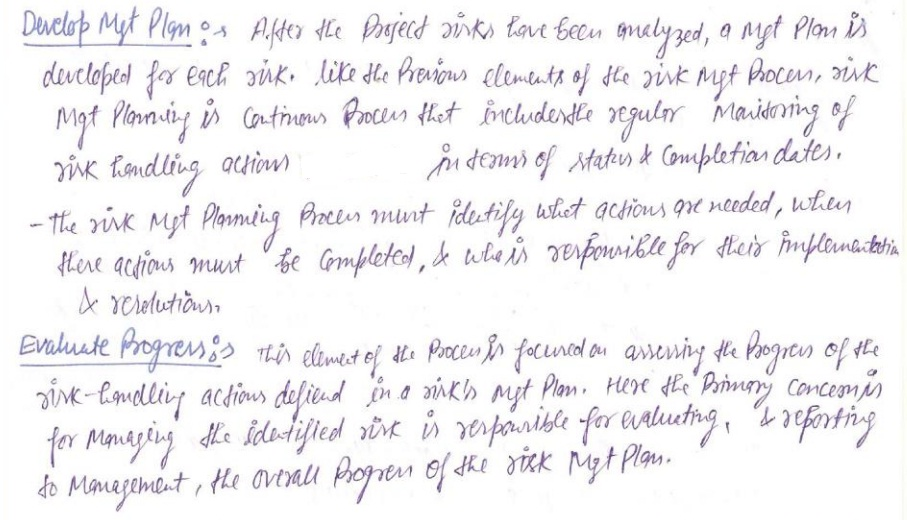 Develop Mgt Plan :- After the Project risks have been analyzed, a mgt Plan is
developed for each risk. like the Previous elements of the risk Mgt Process, risk
Mgt Planning is Continuous Process that includes the regular Monitoring of
risk handling actions in terms of status & Completion dates.
- The risk Mgt Planning Process must identify what actions are needed, when
these actions must be Completed, & who is responsible for their implementation
& resolutions.
Evaluate Progress :- This element of the Process is focused on assessing the Progress of the
risk-handling actions defiend in a risk's mgt Plan. Here the Primary concern is
for Managing the identified risk is responsible for evaluating, & reporting
to Management, the overall Progress of the risk Mgt Plan.